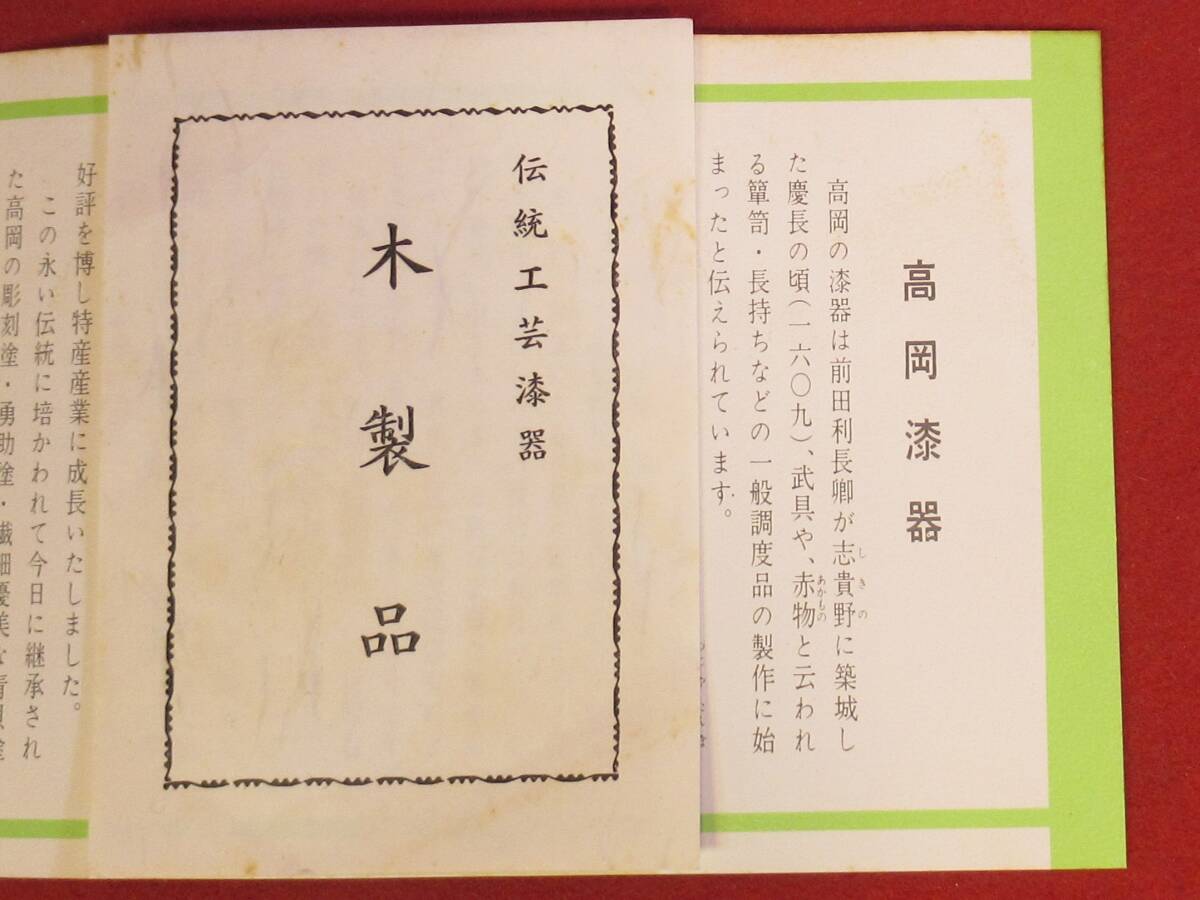 高岡漆器
高岡の漆器は前田利長卿が志貴野に築城し
しきの
た慶長の頃(一六〇九)、武具や、赤物と云われ
あかもの
る簞笥・長持ちなどの一般調度品の製作に始
まったと伝えられています。
伝統工芸漆器
木製品
好評を博し特産産業に成長いたしました。
この永い伝統に培かわれて今日に継承され
た高岡の彫刻塗・勇助塗・繊細優美な青貝塗